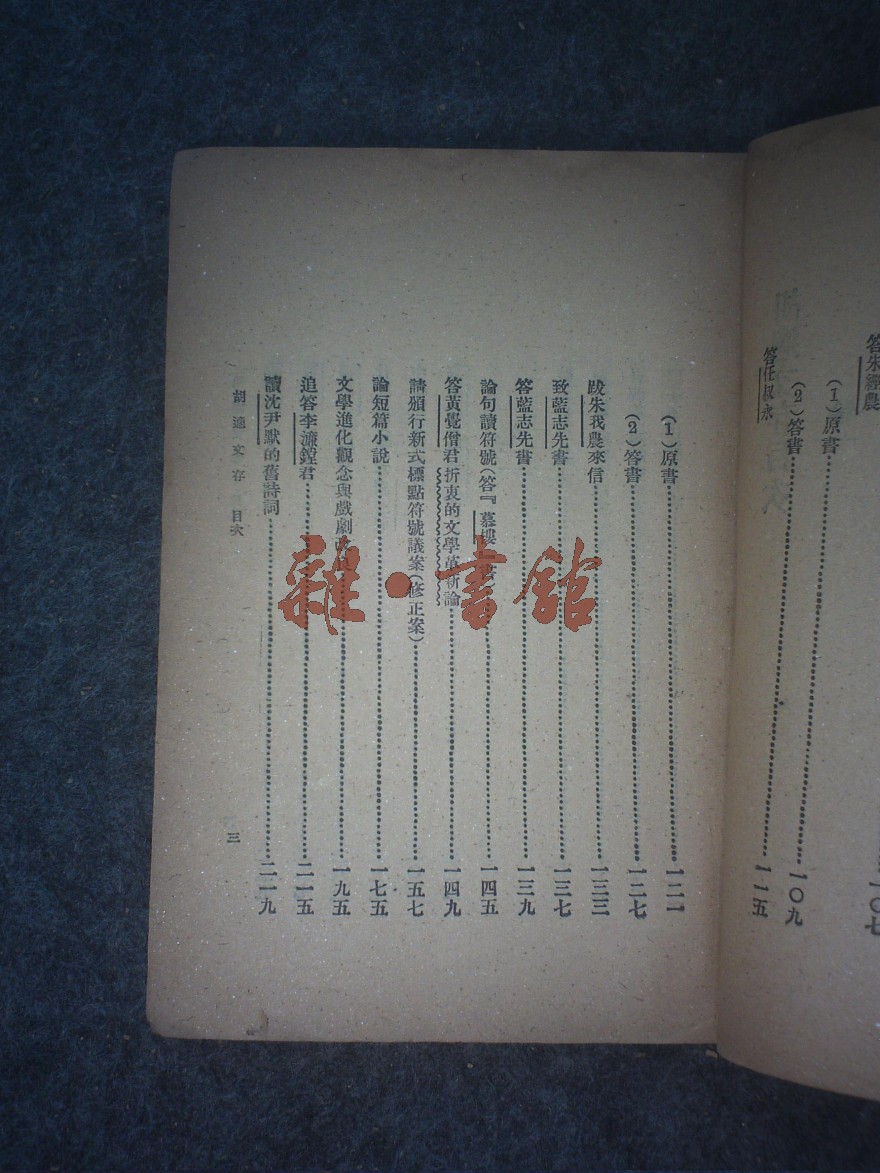 答朱經農……一〇七
(1)原書
(2)答書……一〇九
答任叔永……一一五
(1)原書……一二一
(2)答書……一二七
跋朱我農來信……一三三
致藍志先書……一三七
答藍志先書……一三九
論句讀符號(答『慕樓』書)……一四五
答黃覺僧君折衷的文學革新論……一四九
請頒行新式標點符號議案(修正案)……一五七
論短篇小說……一七五
文學進化觀念與戲劇改……一九五
追答李濂鏜君……二一五
讀沈尹默的舊詩詞……二一九
胡適文存 目次 三
雜·書館